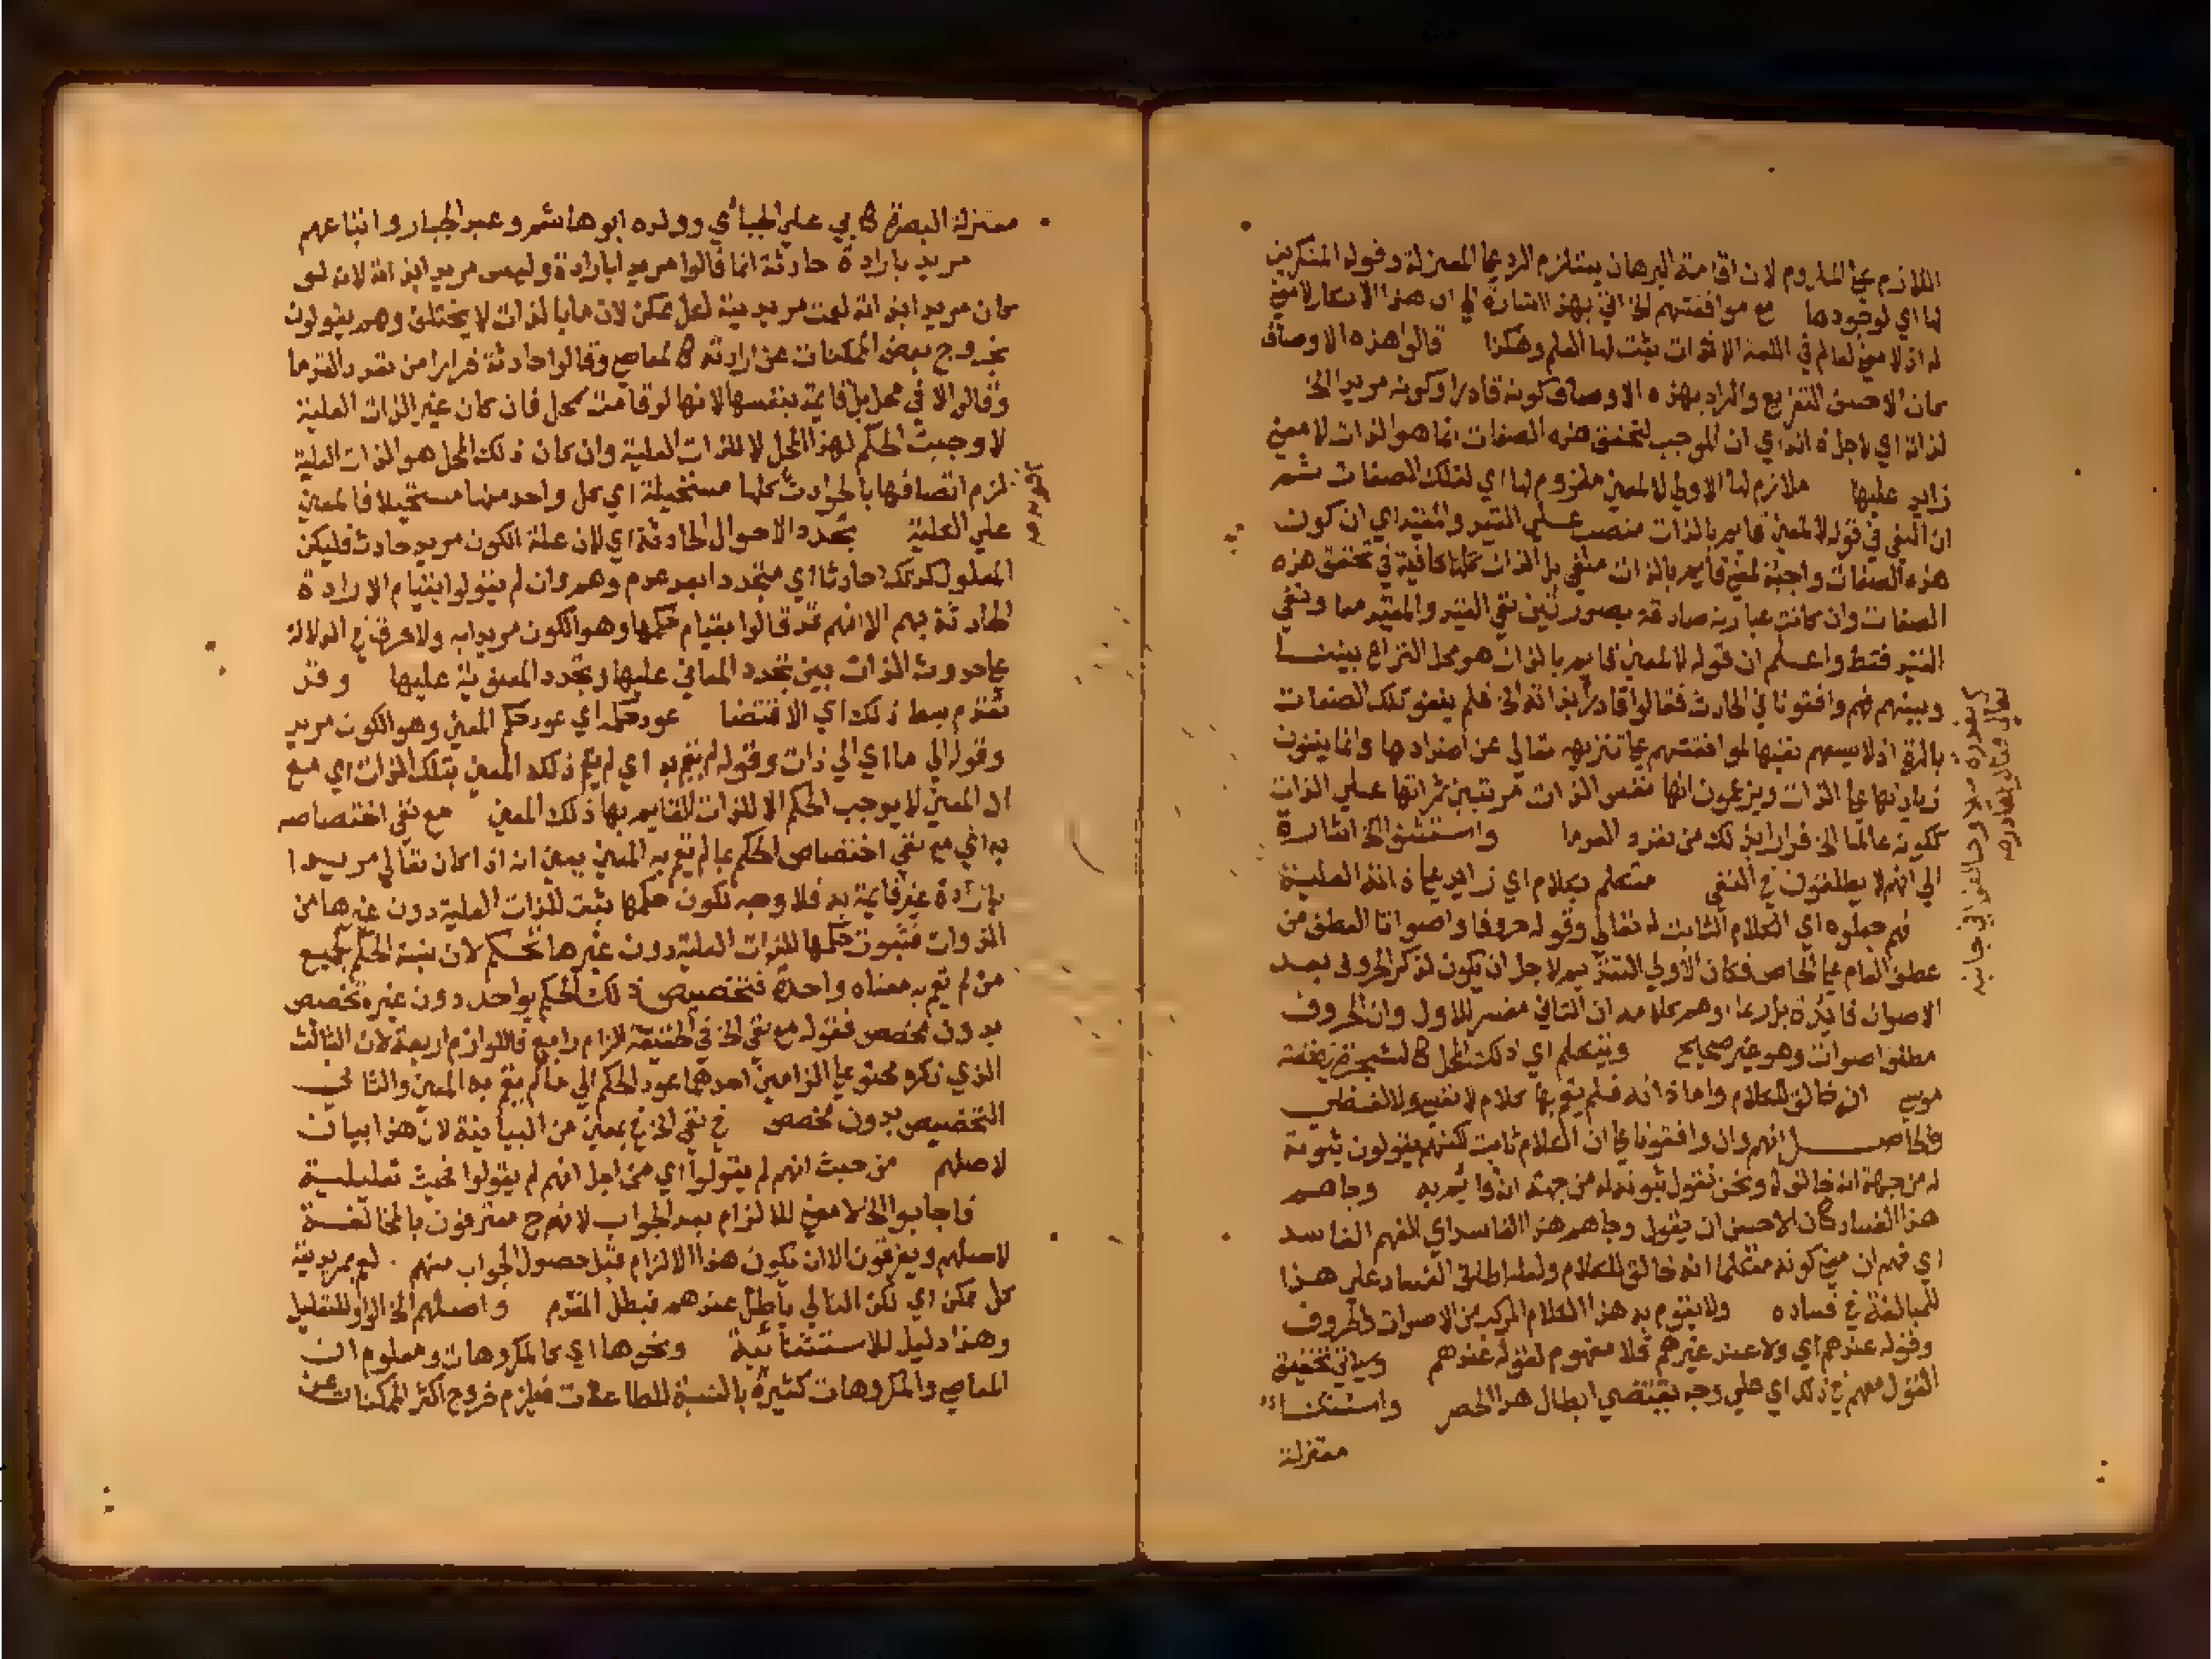 اللازم على الملزوم لان اقامة البرهان يستلزم الرد على المعتزلة وقوله المنكرين
لها اي لوجودها مع موافقتهم الخ اتي بهذا اشارة الى ان هذا الانكار لا معنى
له اذ لا معنى لعالم في اللغة الا ذات يثبت لها العلم وهكذا قالوا هذه الاوصاف
كان الاحسن التفريع والمراد بهذه الاوصاف كونه قادرا وكونه مريدا الخ
لذاته اي لاجل ذاته اي ان الموجب لتحقق هذه الصفات انما هو الذات لا معنى
زايد عليها ملازم لها الاولى لا لمعنى ملزوم لها اي لتلك الصفات ثم
ان النفي في قوله لا لمعنى قايم بالذات منصب على القيد والمقيد اي ان كون
هذه الصفات واجبة لمعنى قايم بالذات منتفي بل الذات كافية في تحقق هذه
الصفات وان كانت عبارته صادقة بصورتين نفي القيد والمقيد معا ونفي
القيد فقط واعلم ان قوله لا لمعنى قايم بالذات هو محل النزاع بيننا
وبينهم فهم وافقونا في الحادث فقالوا قادر بذاته الخ فلم ينفو تلك الصفات
بالمرة اذ لا يسعهم نفيها لموافقتهم على تنزيهه تعالى عن اضدادها وانما ينفون
زيادتها على الذات ويزعمون انها نفس الذات مرتبين ثمراتها على الذات
ككونه عالما الخ فرارا بذلك من تعدد القدما واستثنى الخ اشارة
الى انهم لا يطلقون في النفي متكلم بكلام اي زايد على ذاته العلية
ثم جعلوه اي الكلام الثابت له تعالى وقوله حروفا واصواتا العطف من
عطف العام على الخاص فكان الاولى التقديم لاجل ان يكون لذكر الحروف بعد
الاصوات فايدة بل ربما اوهم كلامه ان الثاني مفسر للاول وان الحروف
مطلق اصوات وهو غير صحيح ويتكلم اي ذلك المحل كالشجرة في قصة
موسى ان خالق للكلام واما ذاته فلم يقم بها كلام لا نفسي ولا لفظي
والحاصل انهم وان وافقونا في ان الكلام ثابت لكنهم يقولون ثبوته
له من جهة انه خالق له ونحن نقول ثبوته له من جهة انه قايم به وجاهم
هذا الفساد كان الاحسن ان يقول وجاهم هذا الفاسد اي الفهم الفاسد
اي فهم ان معنى كونه متكلما انه خالق للكلام ولعله اطلق الفساد على هذا
للمبالغة في فساده ولا يقوم به هذا الكلام المركب من الاصوات والحروف
وقوله عندهم اي ولا عند غيرهم فلا مفهوم لقوله عندهم وسياتي تحقيق
القول معهم في ذلك اي على وجه يقتضي ابطال هذا الحصر واستثناء
معتزلة
معتزلة البصرة كابي علي الجبائي وولده ابو هاشم وعبد الجبار واتباعهم
مريد بارادة حادثة انما قالوا مريدا بارادة وليس مريد ابذاته لانه لو
كان مريد ابذاته لعمت مريديته لكل ممكن لان ما بالذات لا يختلف وهم يقولون
بخروج بعض الممكنات عن ارادته كالمعاصي وقالوا حادثة فرارا من تعدد القدما
وقالوا لا في محل بل قايمة بنفسها لانها لو قامت بمحل فان كان غير الذات العلية
لاوجبت الحكم لهذا المحل لا للذات العلية وان كان ذلك المحل هو الذات العلية
لزم اتصافها بالحوادث كلها مستحيلة اي كل واحد منها مستحيلا فالمعنى
على العلية تجدد الاحوال الحادثة اي لان علة الكون مريد حادث فليكن
المعلول كذلك حادثا اي متجددا بعد عدم وهم وان لم يقولوا بقيام الارادة
الحادثة بهم الا انهم قد قالوا بقيام حكمها وهو الكون مريدا به ولا فرق في الدلالة
على حدوث الذات بين تجدد المعاني عليها وتجدد المعنوية عليها وقد
تقدم بسط ذلك اي الاقتضا عود حكمه اي عود حكم المعنى وهو الكون مريد
وقوله الى ما اي الى ذات وقوله لم يقم به اي لم يقم ذلك المعنى بتلك الذات اي مع
ان المعنى لا يوجب الحكم الا للذات القايم بها ذلك المعنى مع نفي اختصاصه
به اي مع نفي اختصاص الحكم بما لم يقم به المعنى بمعنى انه اذا كان تعالى مريدا
بارادة غير قايمة به فلا وجه لكون حكمها يثبت للذات العلية دون غيرها من
الذوات فثبوت حكمها للذات العلية دون غيرها تحكم لان نسبة الحكم لجميع
من لم يقم به معناه واحدة فتخصيص ذلك الحكم بواحد دون غيره تخصيص
بدون مخصص فقوله مع نفي الخ في الحقيقة الزام رابع فاللوازم اربعة لان الثالث
الذي ذكره محتو على الزامين احدهما عود الحكم الى ما لم يقم به المعنى والثاني
التخصيص بدون مخصص في نفي الخ في بمعنى من البيانية لان هذا بيان
لاصلهم من حيث انهم لم يقولوا اي من اجل انهم لم يقولوا فحيث تعليلية
فاجابوا الخ لا معنى للالزام بعد الجواب لانهم ح معترفون بالمخالفة
لاصلهم ويعرفون الا ان يكون هذا الالزام قبل حصول الجواب منهم لعم مريديته
كل ممكن اي لكن التالي باطل عندهم فبطل المقدم واصلهم الخ الواو للتعليل
وهذا دليل للاستثنائية ونحوها اي كالمكروهات ومعلوم ان
المعاصي والمكروهات كثيرة بالنسبة للطاعات فيلزم خروج اكثر الممكنات عن